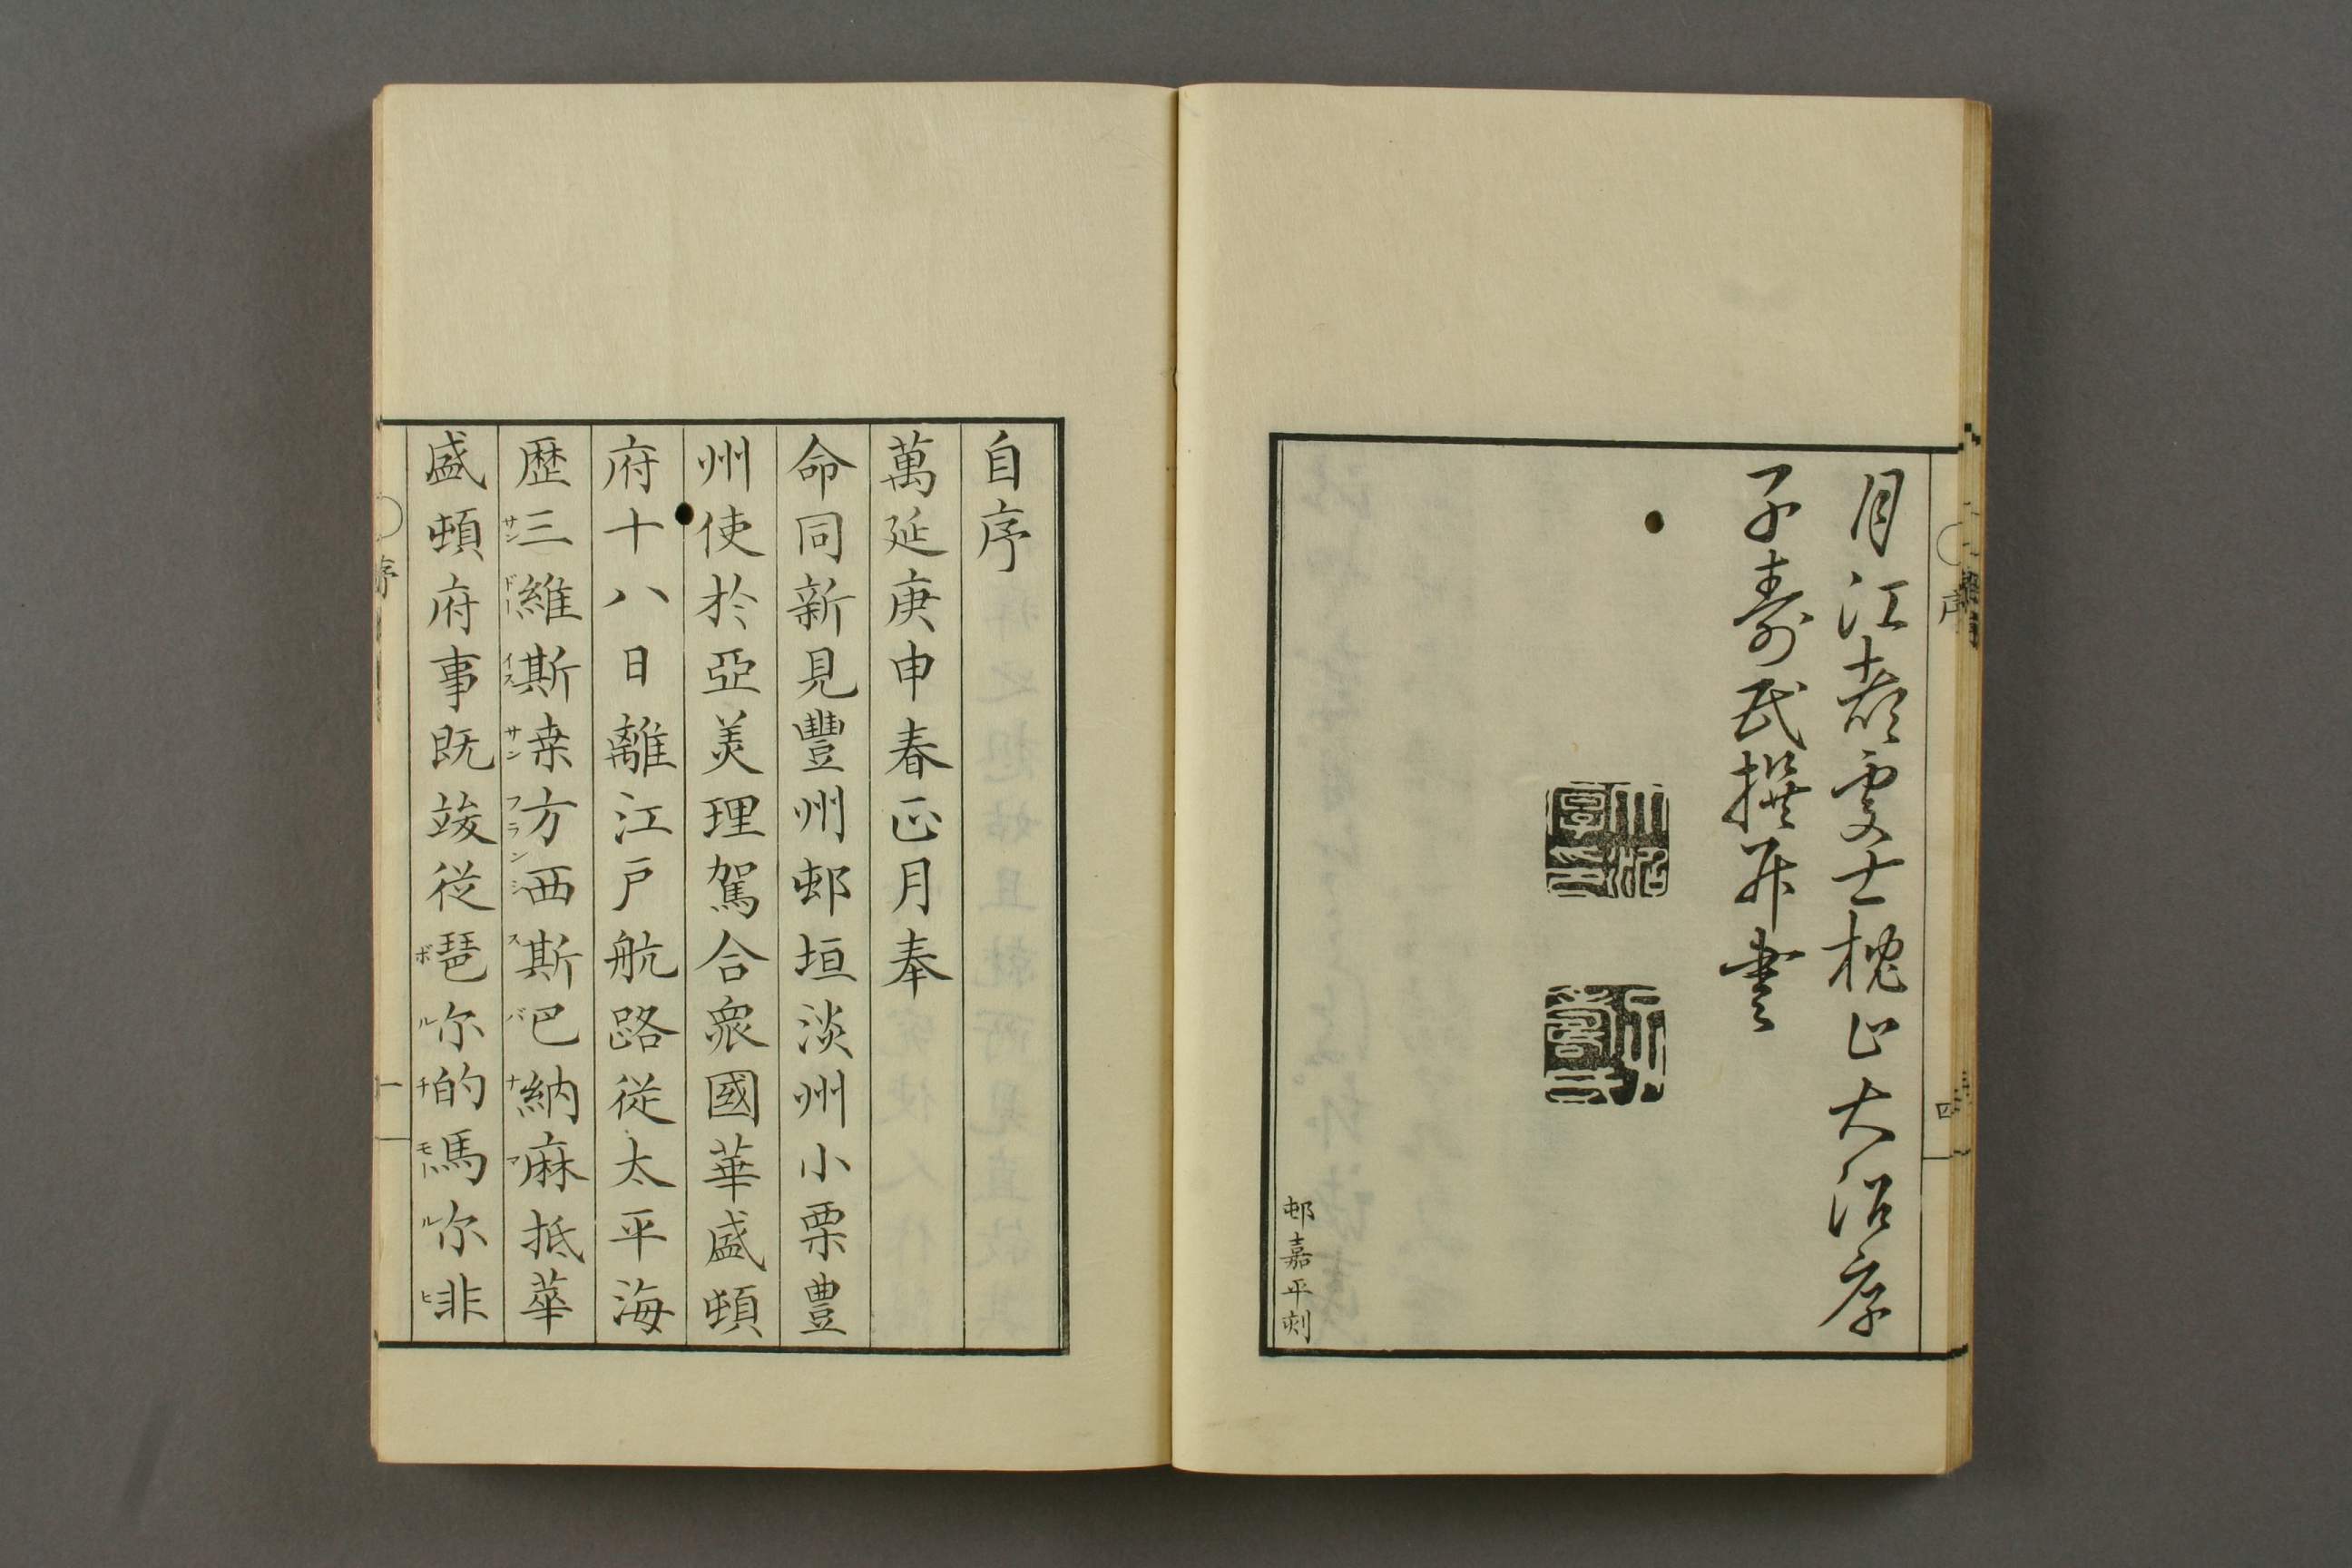 月江都處士枕山大沼厚
子壽氏撰并書
邨嘉平刻
自序
萬延庚申春正月奉
命同新見豐州邨垣淡州小栗豊
州使於亞美理駕合衆國華盛頓
府十八日離江戸航路從太平海
歴三維斯桒方西斯巴納麻抵華
サンドーイスサンフランシスバナマ
盛頓府事既竣從琶尓的馬尓非
ボルチモールヒ
序
一